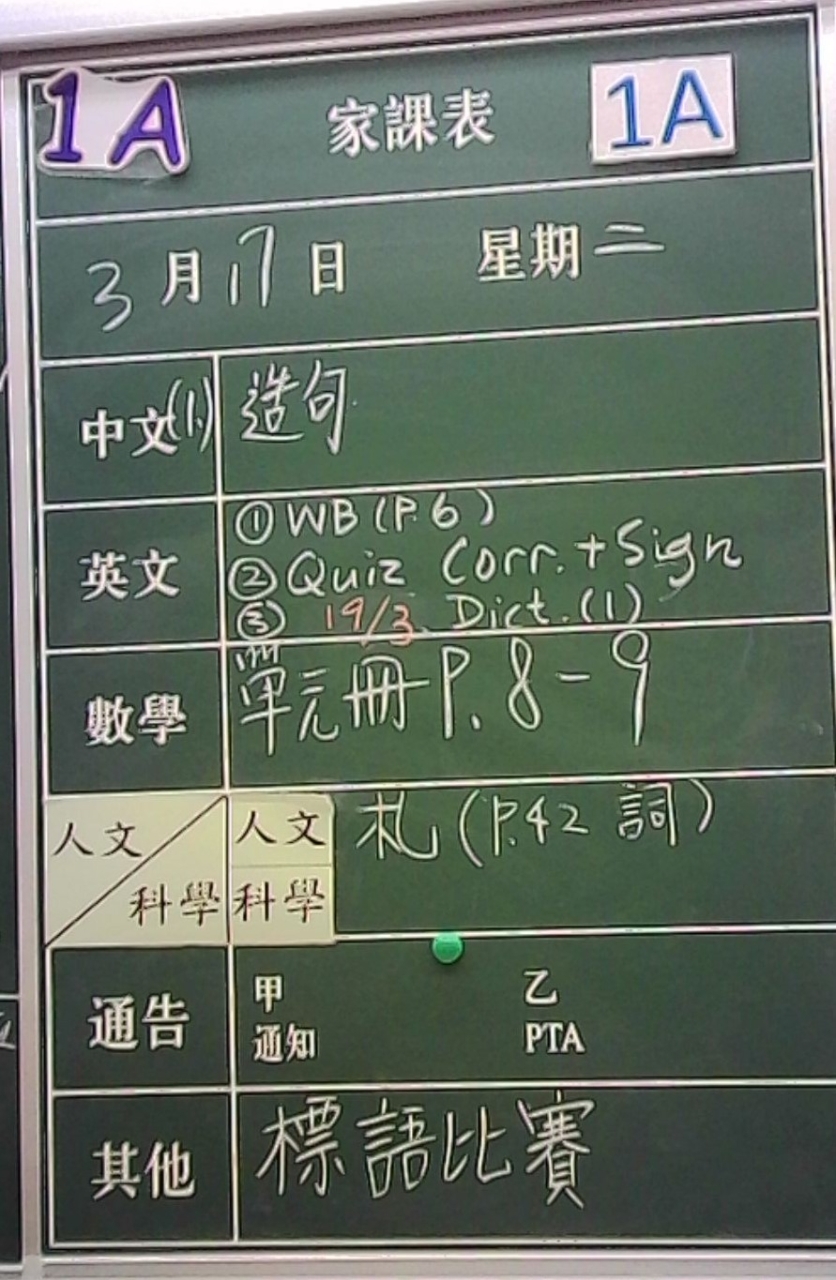 1A 家課表 1A
3月17日 星期二
中文(1) 造句
英文
① WB (P.6)
② Quiz Corr. + Sign
③ 19/3 Dict. (1)
數學 單元冊 P. 8 - 9
人文 人文 札 (P.42 詞)
科學 科學
通告
甲 乙
通知 PTA
其他 標語比賽